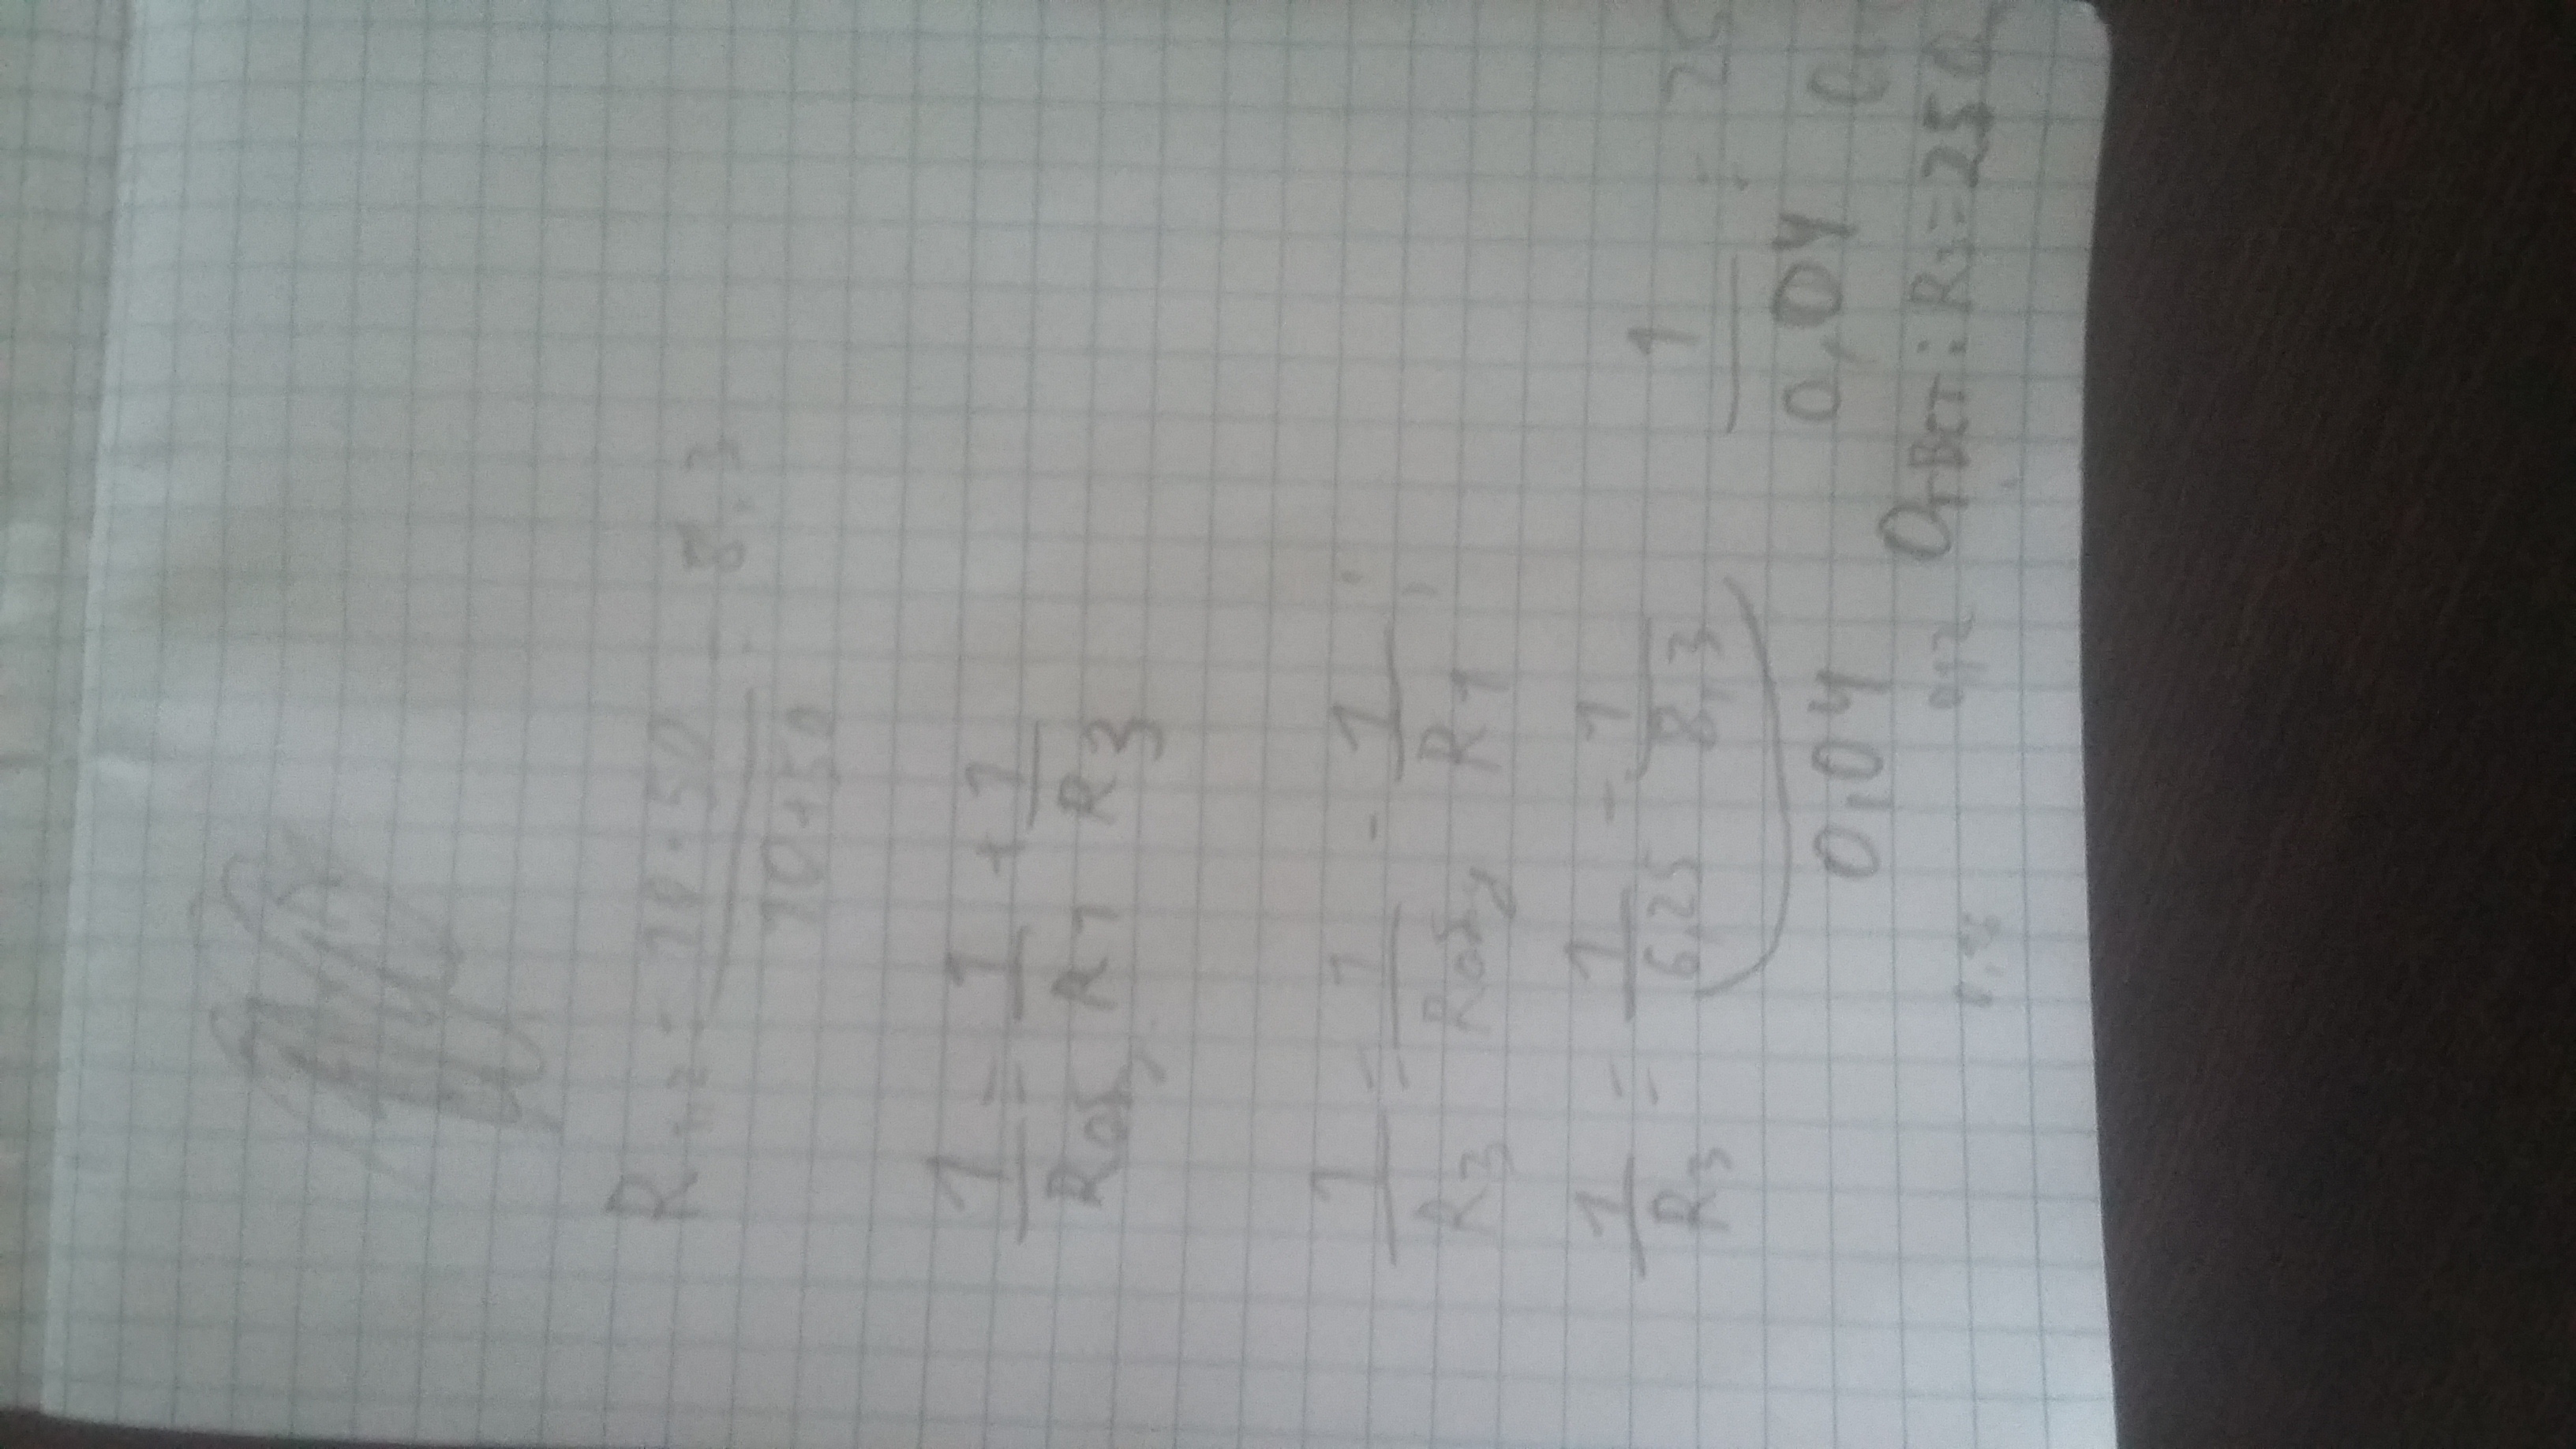 R₁,₂ = 10·50 / 10+50 = 8,3
1/Rобщ = 1/R1 + 1/R3
1/R3 = 1/Rобщ - 1/R1
1/R3 = 1/6,25 - 1/8,3 1/0,04 = 25
0,04
0,12 Ответ: R₃=25 О